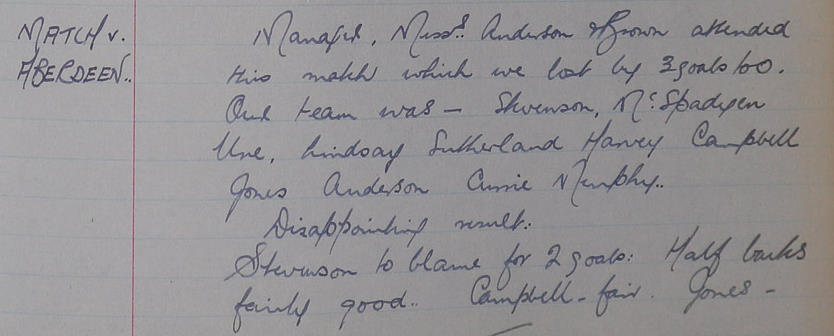 MATCH v.
ABERDEEN..
Manager, Messrs. Anderson & Brown attended
this match which we lost by 3 goals to 0.
Our team was – Stevenson, McSpadyen
Ure, Lindsay Sutherland Harvey Campbell
Jones Anderson Currie Murphy..
Disappointing result:
Stevenson to blame for 2 goals: Half backs
fairly good.. Campbell - fair. Jones -